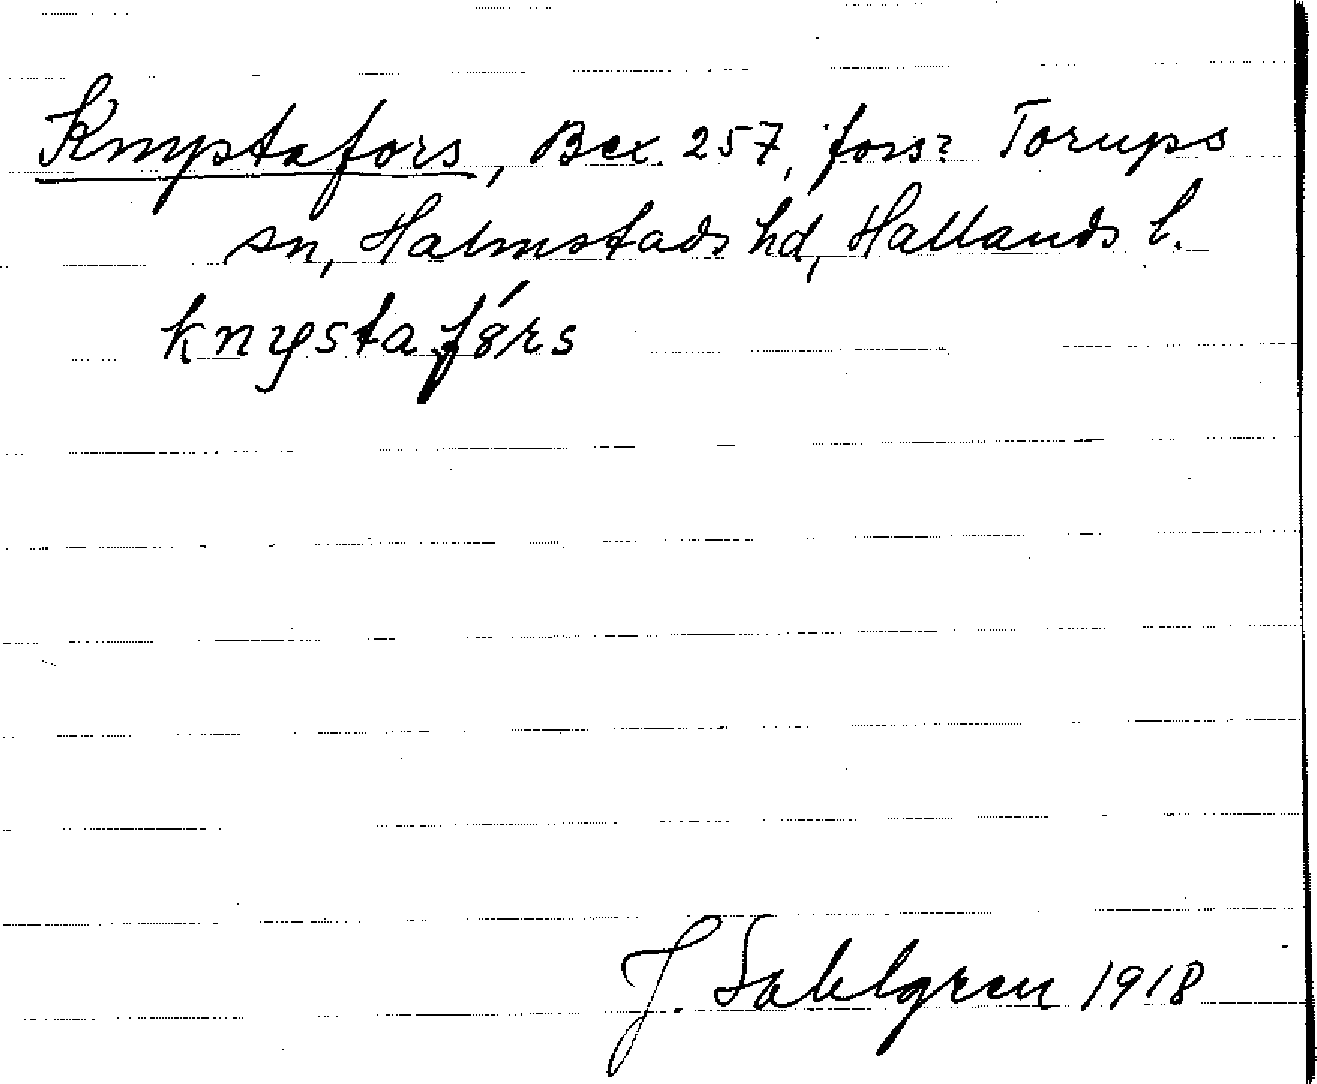 Knyptafors, Bex. 257, fors? Torups
sn, Halmstads hd, Hallands l.
knystafórs
J. Sahlgren 1918